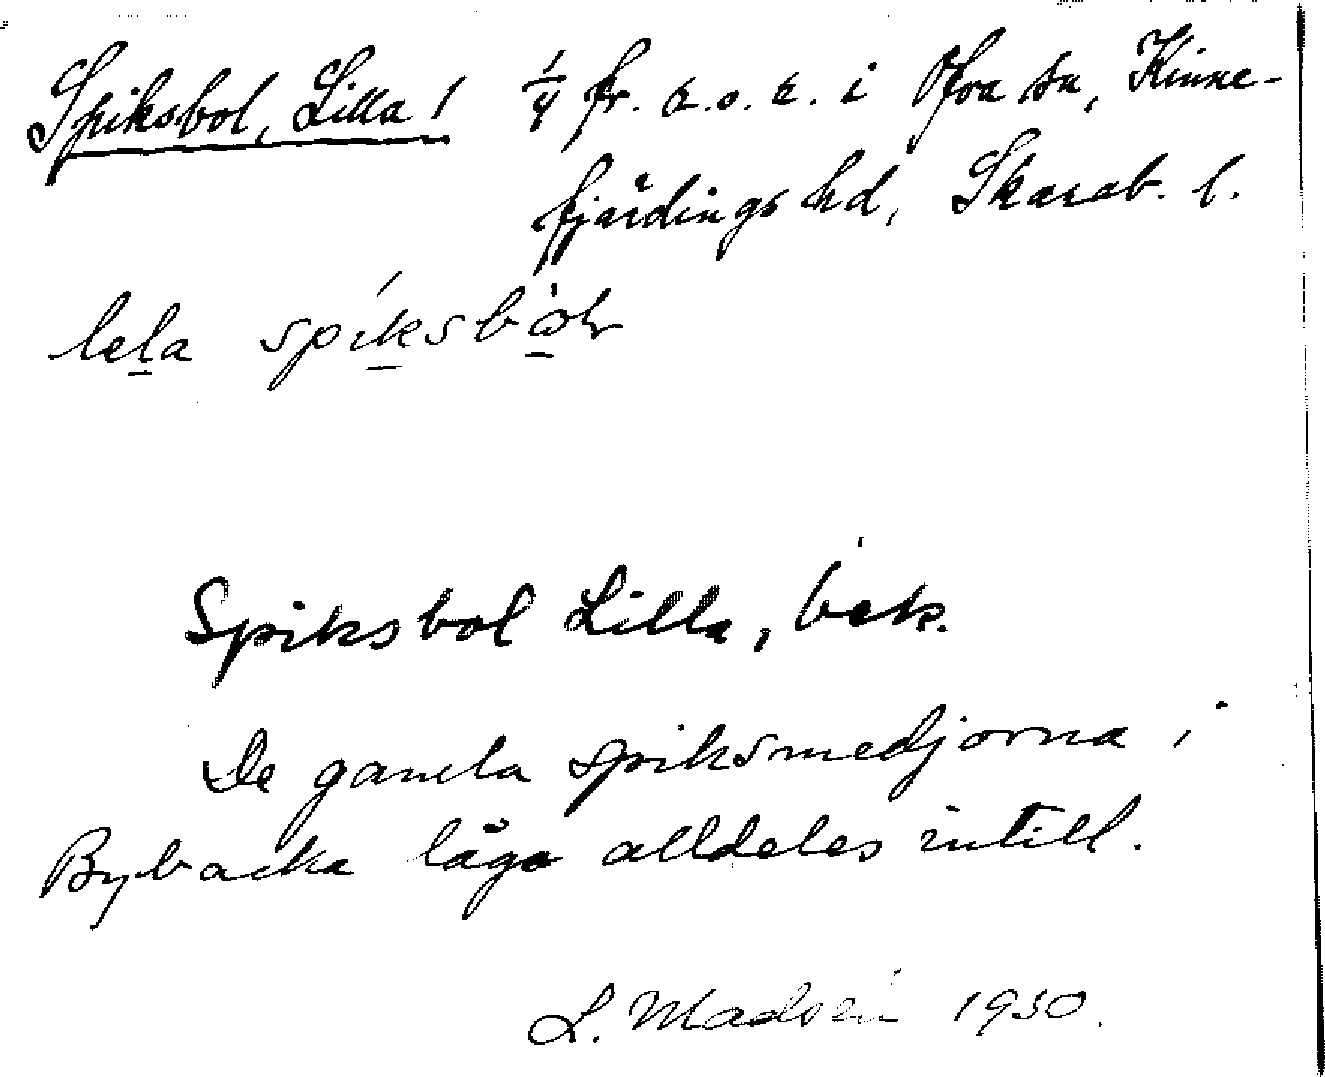 Spiksbol, Lilla! 1/4 fr. s.o.s. i Ova sn, Kinne-
fjärdings hd, Skarab. l.
lela spiksbol
Spiksbol Lilla, bek.
De gamla spiksmedjorna i
Bybacka låga alldeles intill.
L. Madsén 1930.